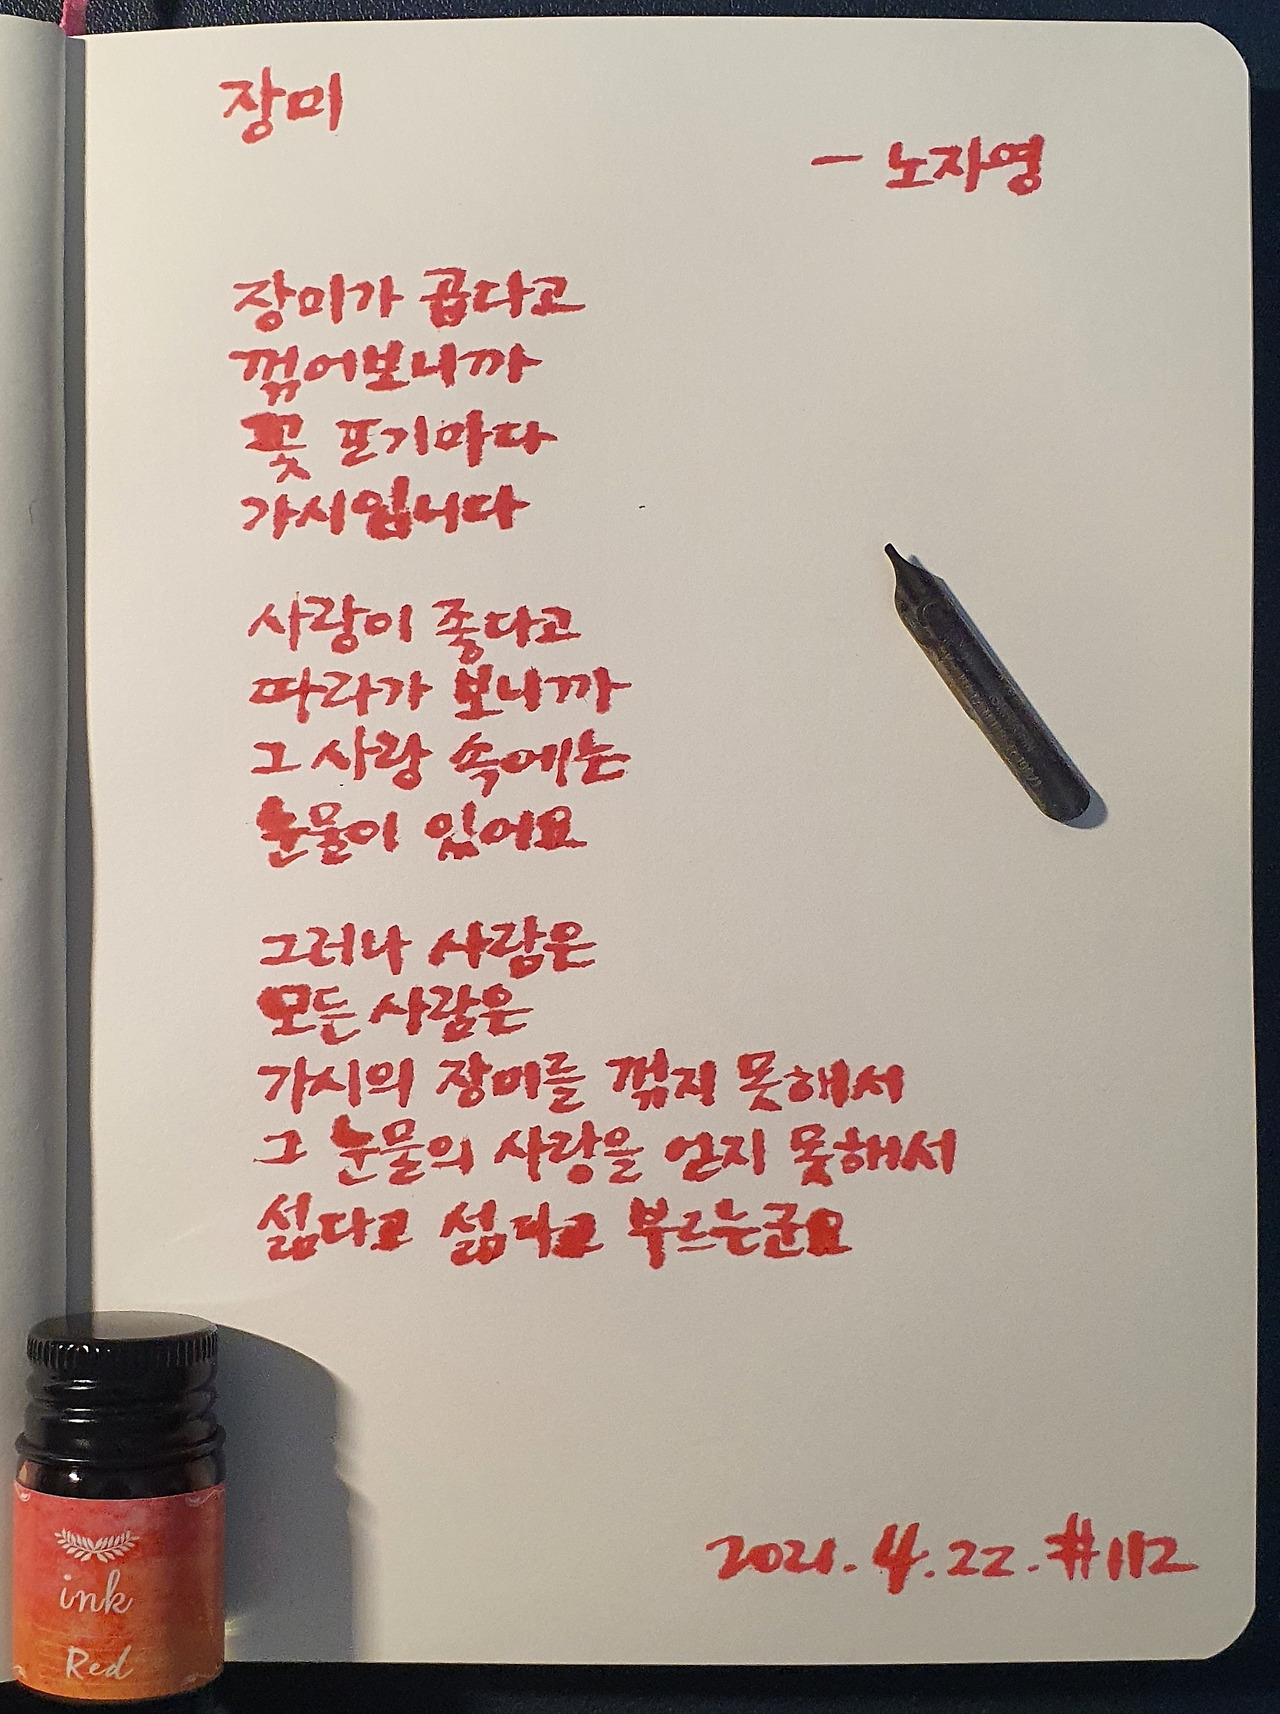 장미
- 노자영
장미가 곱다고
꺾어보니까
꽃 포기마다
가시입니다
사랑이 좋다고
따라가 보니까
그 사랑 속에는
눈물이 있어요
그러나 사람은
모든 사람은
가시의 장미를 꺾지 못해서
그 눈물의 사랑을 얻지 못해서
섧다고 섧다고 부르는군요
2021. 4. 22. #112
ink
Red